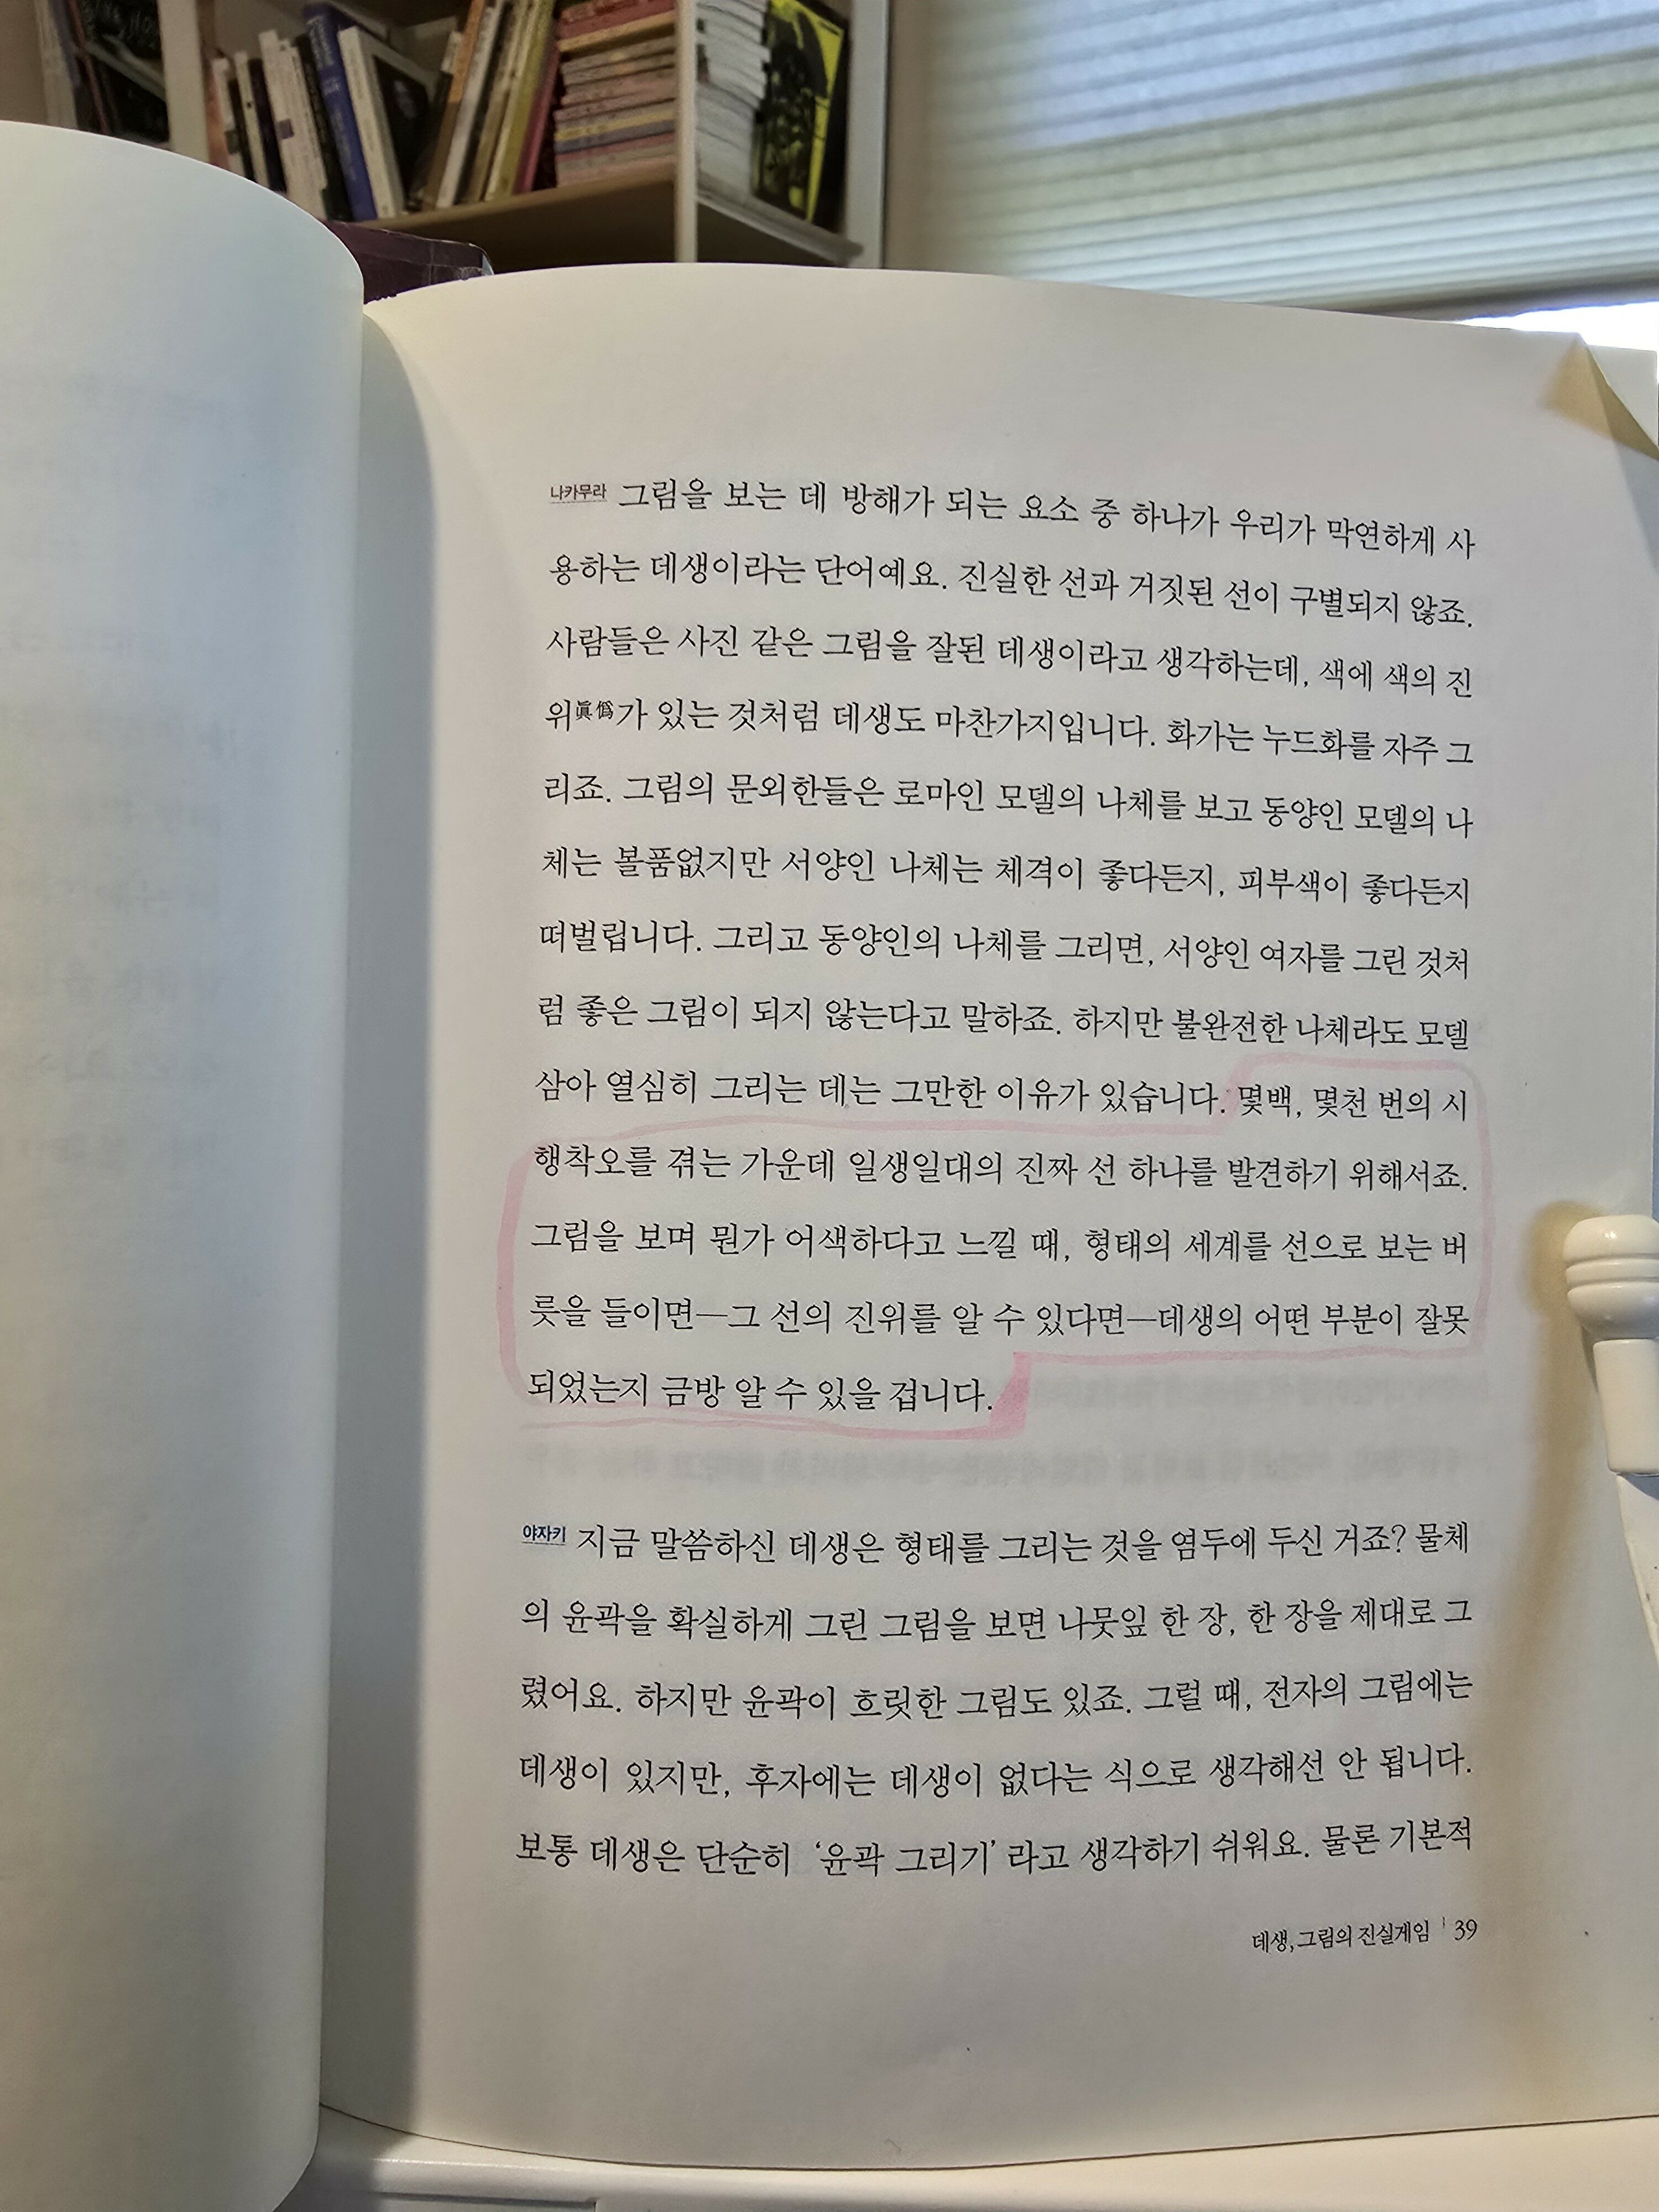 나카무라 그림을 보는 데 방해가 되는 요소 중 하나가 우리가 막연하게 사
용하는 데생이라는 단어예요. 진실한 선과 거짓된 선이 구별되지 않죠.
사람들은 사진 같은 그림을 잘된 데생이라고 생각하는데, 색에 색의 진
위眞僞가 있는 것처럼 데생도 마찬가지입니다. 화가는 누드화를 자주 그
리죠. 그림의 문외한들은 로마인 모델의 나체를 보고 동양인 모델의 나
체는 볼품없지만 서양인 나체는 체격이 좋다든지, 피부색이 좋다든지
떠벌립니다. 그리고 동양인의 나체를 그리면, 서양인 여자를 그린 것처
럼 좋은 그림이 되지 않는다고 말하죠. 하지만 불완전한 나체라도 모델
삼아 열심히 그리는 데는 그만한 이유가 있습니다. 몇백, 몇천 번의 시
행착오를 겪는 가운데 일생일대의 진짜 선 하나를 발견하기 위해서죠.
그림을 보며 뭔가 어색하다고 느낄 때, 형태의 세계를 선으로 보는 버
릇을 들이면—그 선의 진위를 알 수 있다면—데생의 어떤 부분이 잘못
되었는지 금방 알 수 있을 겁니다.
야자키 지금 말씀하신 데생은 형태를 그리는 것을 염두에 두신 거죠? 물체
의 윤곽을 확실하게 그린 그림을 보면 나뭇잎 한 장, 한 장을 제대로 그
렸어요. 하지만 윤곽이 흐릿한 그림도 있죠. 그럴 때, 전자의 그림에는
데생이 있지만, 후자에는 데생이 없다는 식으로 생각해선 안 됩니다.
보통 데생은 단순히 ‘윤곽 그리기’라고 생각하기 쉬워요. 물론 기본적
데생, 그림의 진실게임 | 39